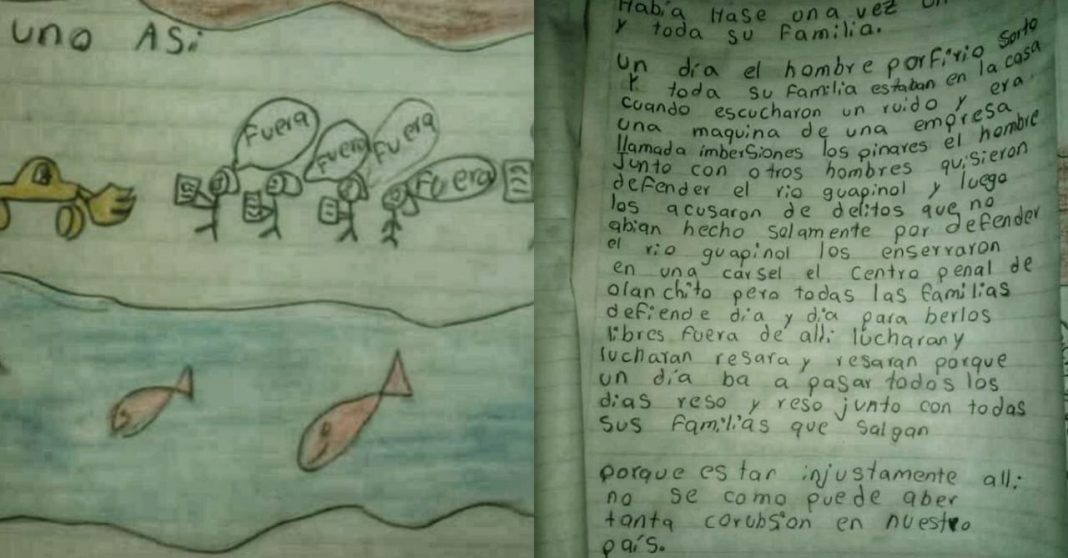 uno Asi
Fuera
Fuera
Fuera
Fuera
Había Hase una vez un
y toda su familia.
un día el hombre porfirio Sorto
y toda su familia estaban en la casa
cuando escucharon un ruido y era
una maquina de una empresa
llamada imbersiones los pinares el hombre
Junto con otros hombres quisieron
defender el rio guapinol y luego
los acusaron de delitos que no
abian hecho solamente por defender
el rio guapinol los enserraron
en una carsel el centro penal de
olanchito pero todas las familias
defiende dia y dia para berlos
libres fuera de alli lucharan y
lucharan resara y resaran porque
un día ba a pasar todos los
dias reso y reso junto con todas
sus familias que salgan
porque estar injustamente alli
no se como puede aber
tanta corubsion en nuestro
país.